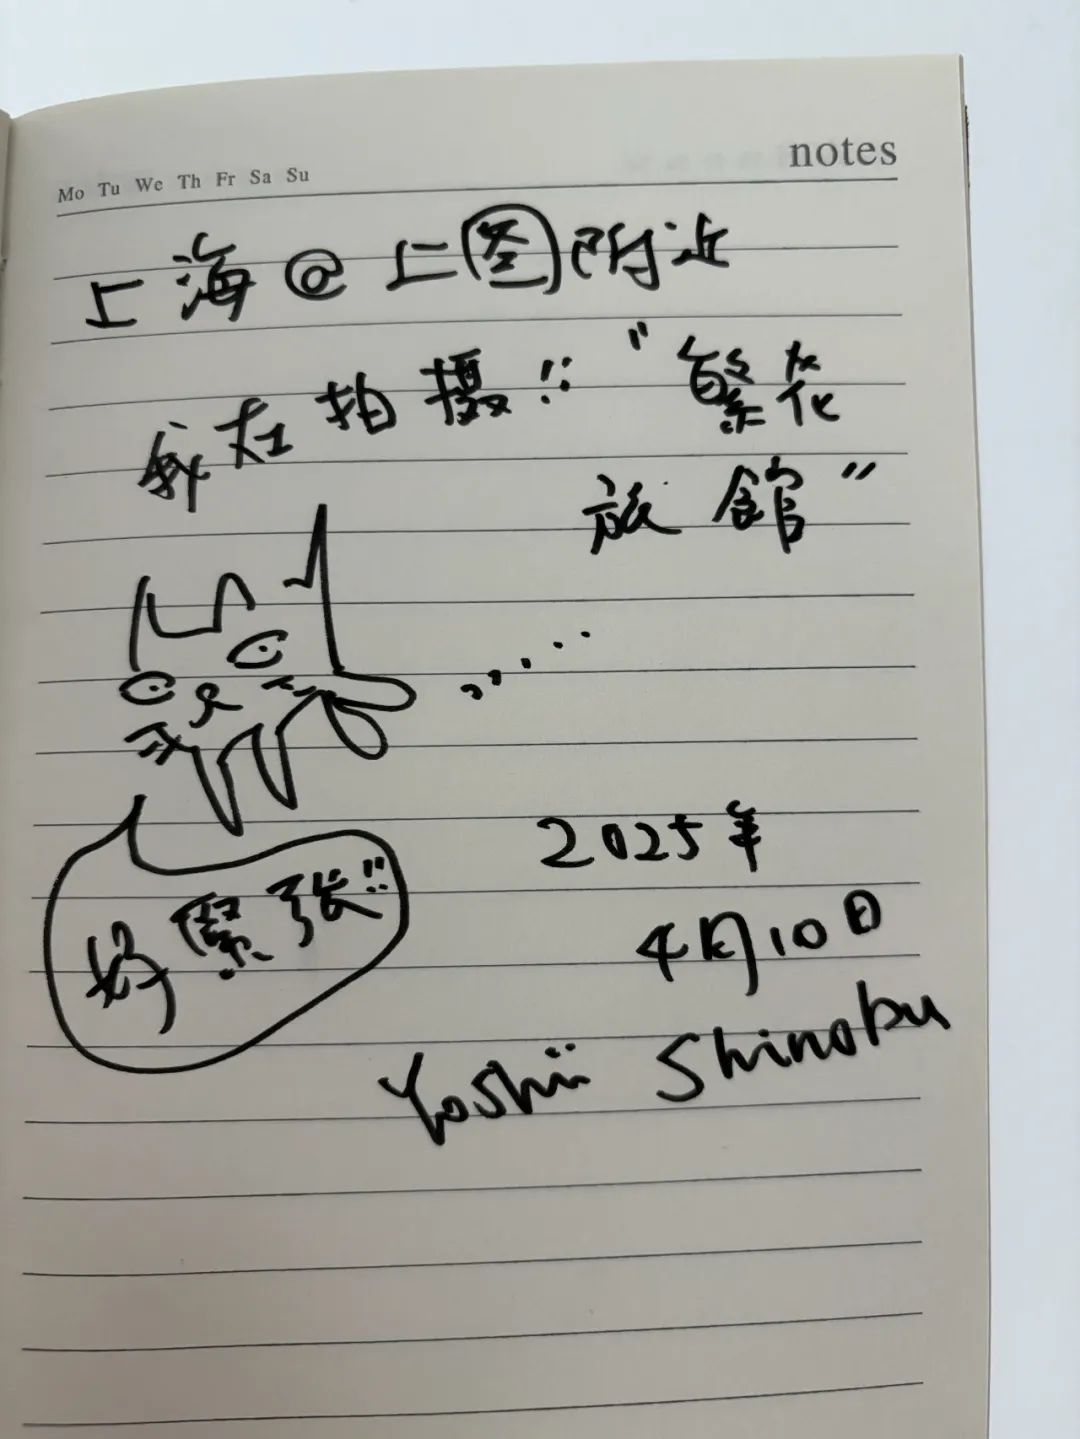 Mo Tu We Th Fr Sa Su
notes
上海@上图附近
我在拍摄!! "繁花
旅館"
好緊张!!
2025年
4月10日
Yoshii Shinobu